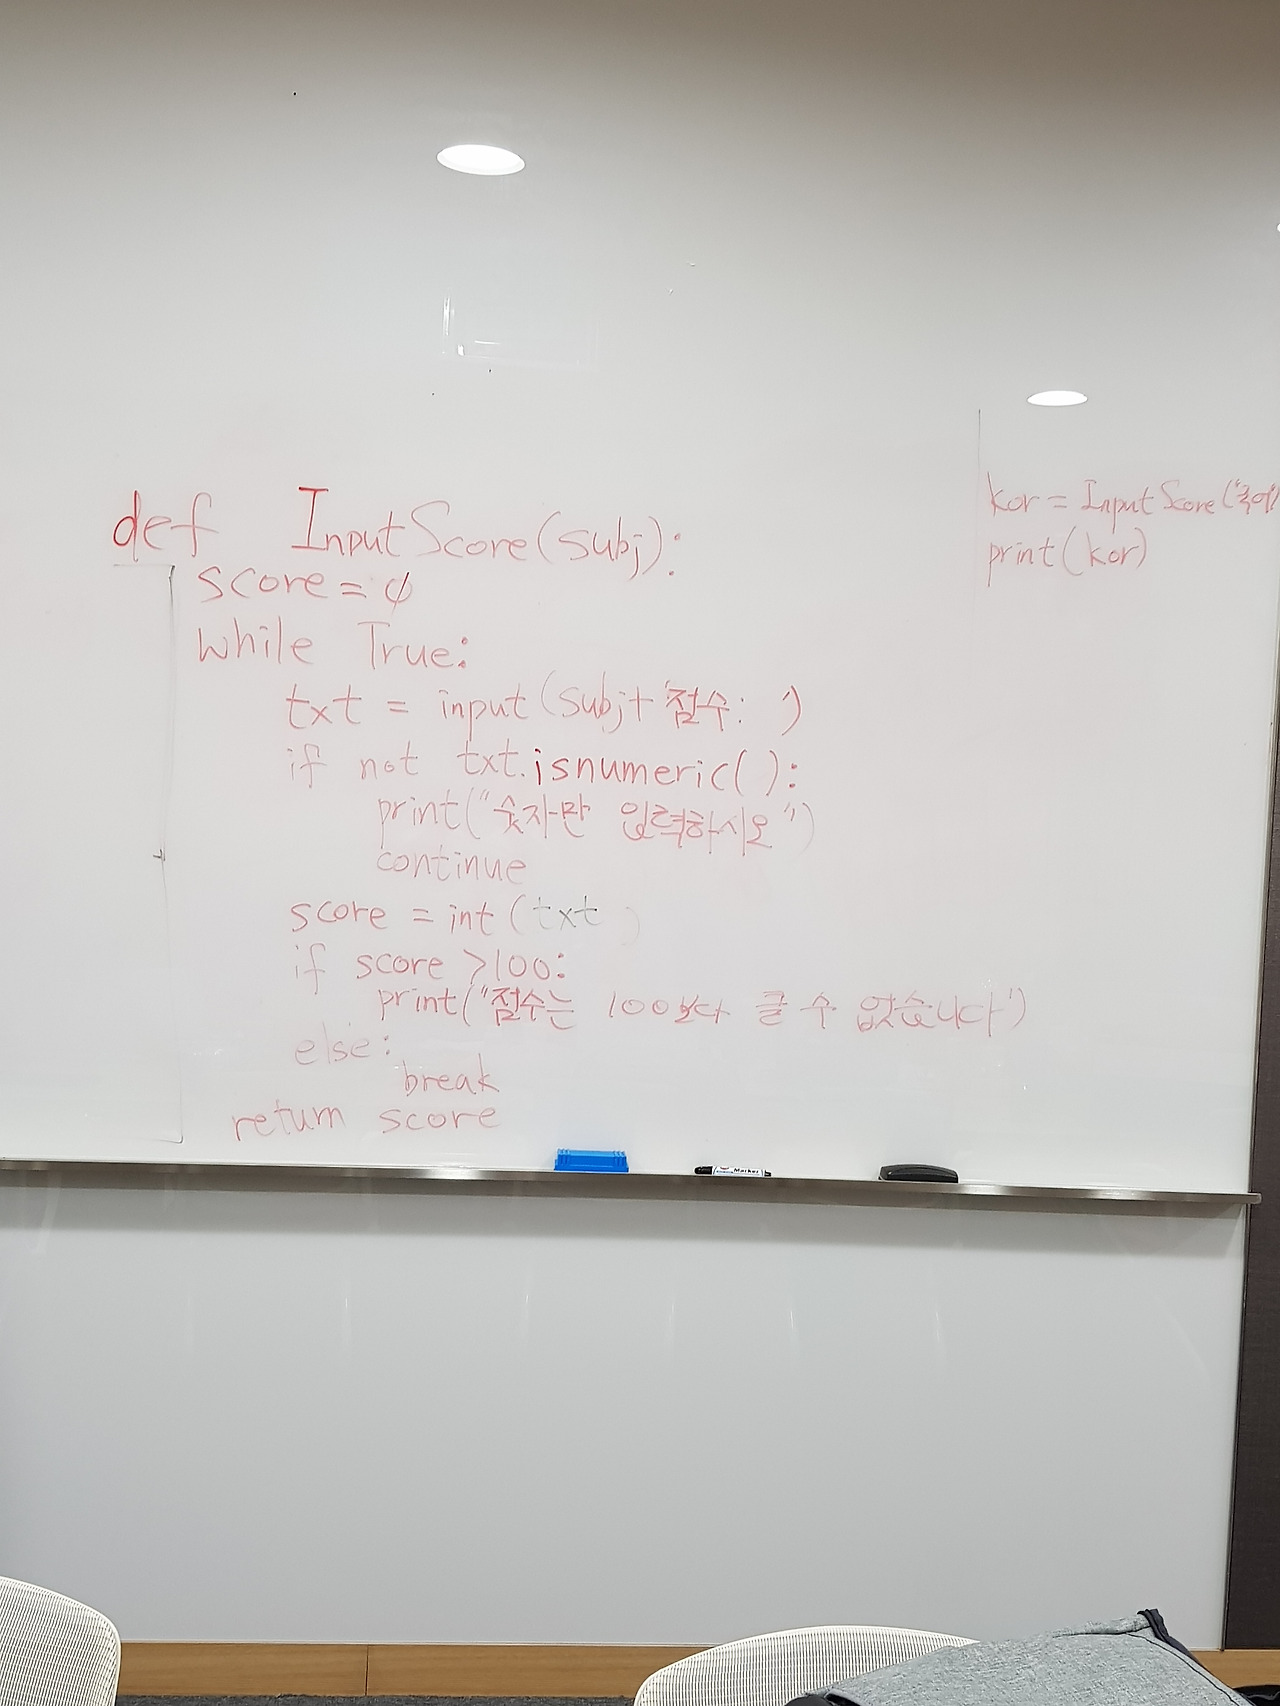 def InputScore(subj):
score = 0
while True:
txt = input(subj+'점수: ')
if not txt.isnumeric():
print("숫자만 입력하시오")
continue
score = int(txt)
if score >100:
print("점수는 100보다 클 수 없습니다")
else:
break
return score
kor = InputScore('국어'
print(kor)
Marker